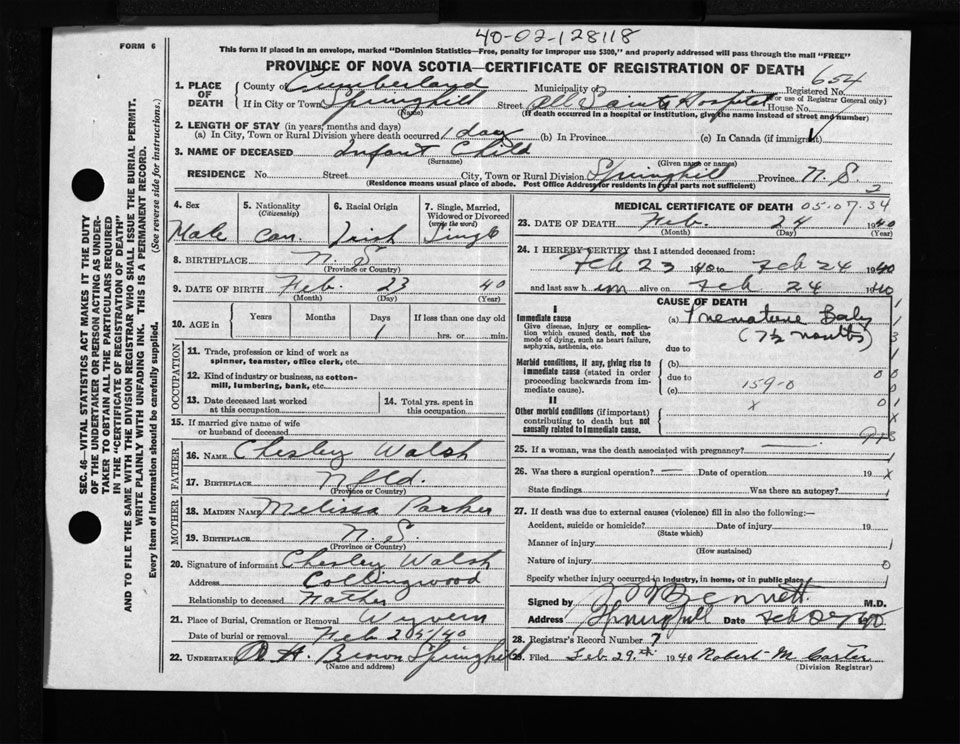 40-02-128118
FORM 6
This form if placed in an envelope, marked "Dominion Statistics—Free, penalty for improper use $300," and properly addressed will pass through the mail "FREE"
PROVINCE OF NOVA SCOTIA—CERTIFICATE OF REGISTRATION OF DEATH
654
SEC. 46—VITAL STATISTICS ACT MAKES IT THE DUTY
OF THE UNDERTAKER OR PERSON ACTING AS UNDER-
TAKER TO OBTAIN ALL THE PARTICULARS REQUIRED
IN THE "CERTIFICATE OF REGISTRATION OF DEATH"
AND TO FILE THE SAME WITH THE DIVISION REGISTRAR WHO SHALL ISSUE THE BURIAL PERMIT.
WRITE PLAINLY WITH UNFADING INK. THIS IS A PERMANENT RECORD.
Every item of information should be carefully supplied. (See reverse side for instructions.)
1. PLACE OF DEATH
County of Cumberland Municipality of Registered No.
(For use of Registrar General only)
If in City or Town Springhill Street All Saints Hospital House No.
(Name) (If death occurred in a hospital or institution, give the name instead of street and number)
2. LENGTH OF STAY (in years, months and days)
(a) In City, Town or Rural Division where death occurred 1 day (b) In Province (c) In Canada (if immigrant)
3. NAME OF DECEASED Infant Child
(Surname) (Given name or names)
RESIDENCE No. Street City, Town or Rural Division Springhill Province N.S.
(Residence means usual place of abode. Post Office Address for residents in rural parts not sufficient)
3
4. Sex Male
5. Nationality (Citizenship) Can.
6. Racial Origin Irish
7. Single, Married, Widowed or Divorced (write the word) Single
8. BIRTHPLACE N.S.
(Province or Country)
9. DATE OF BIRTH Feb. 23 40
(Month) (Day) (Year)
10. AGE in Years Months Days If less than one day
1 hrs. or min.
OCCUPATION
11. Trade, profession or kind of work as
spinner, teamster, office clerk, etc.
12. Kind of industry or business, as cotton-
mill, lumbering, bank, etc.
13. Date deceased last worked
at this occupation
14. Total yrs. spent in
this occupation
15. If married give name of wife
or husband of deceased
FATHER
16. NAME Chesley Walsh
17. BIRTHPLACE Nfld.
(Province or Country)
MOTHER
18. MAIDEN NAME Melissa Parker
19. BIRTHPLACE N.S.
(Province or Country)
20. Signature of informant Chesley Walsh
Address Collingwood
Relationship to deceased Father
21. Place of Burial, Cremation or Removal
Date of burial or removal Feb 25/40
22. UNDERTAKER A. H. Brown Springhill
(Name and address)
MEDICAL CERTIFICATE OF DEATH 05.07.34
23. DATE OF DEATH Feb. 24 1940
(Month) (Day) (Year)
24. I HEREBY CERTIFY that I attended deceased from:
Feb 23 1940 to Feb 24 1940
and last saw him alive on Feb 24 1940
CAUSE OF DEATH
I
Immediate cause
Give disease, injury or complica-
tion which caused death, not the
mode of dying, such as heart failure,
asphyxia, asthenia, etc.
(a) Premature Baby
(7½ months)
due to
Morbid conditions, if any, giving rise to
immediate cause (stated in order
proceeding backwards from im-
mediate cause).
(b)
due to
(c) 159-0
II
Other morbid conditions (if important)
contributing to death but not
causally related to immediate cause.
x
25. If a woman, was the death associated with pregnancy?
26. Was there a surgical operation? — Date of operation 19 x
State findings Was there an autopsy?
27. If death was due to external causes (violence) fill in also the following:—
Accident, suicide or homicide? Date of injury 19
(State which)
Manner of injury
(How sustained)
Nature of injury 0
Specify whether injury occurred in industry, in home, or in public place
Signed by Bennett M.D.
Address Springhill Date Feb 1940
28. Registrar's Record Number 7
29. Filed Feb. 29th 1940 Robert M. Carter
(Division Registrar)